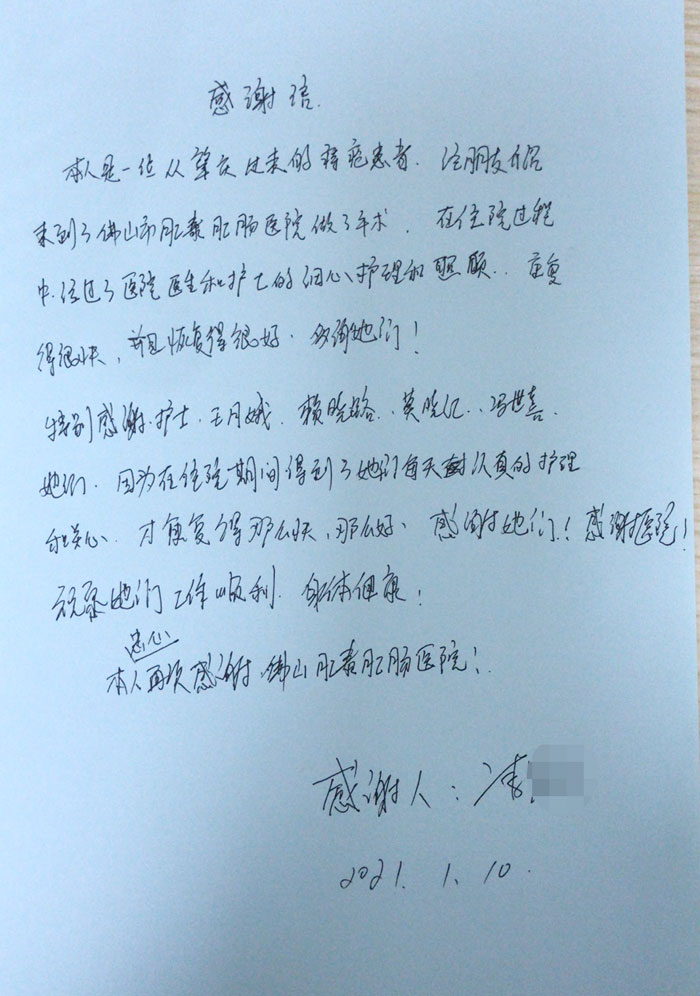 感谢信.
本人是一位从肇庆过来的痔疮患者. 经朋友介绍
来到了佛山市肛泰肛肠医院做了手术. 在住院过程
中.经过了医院医生和护士的细心护理和照顾.
得很快,并且恢复得很好. 多谢她们!
特别感谢.护士.王月娥. 赖晓路.. 莫晓 .冯世喜.
她们. 因为在住院期间得到了她们每天 认真的护理
和关心. 才恢复得那么快、那么好. 感谢她们!感谢医院!
祝 她们工作顺利. 身体健康!
忠心
本人再次感谢.佛山肛泰肛肠医院!
感谢人:
2021. 1. 10.